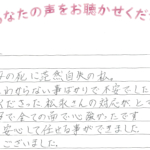 あなたの声をお聴かせくだ
の死に茫然自失の私。
わからない事ばかりで不安でした
くださった松永さんの対応がとて
まで全ての面で心強かったです
安心して任せる事ができました
ございました。